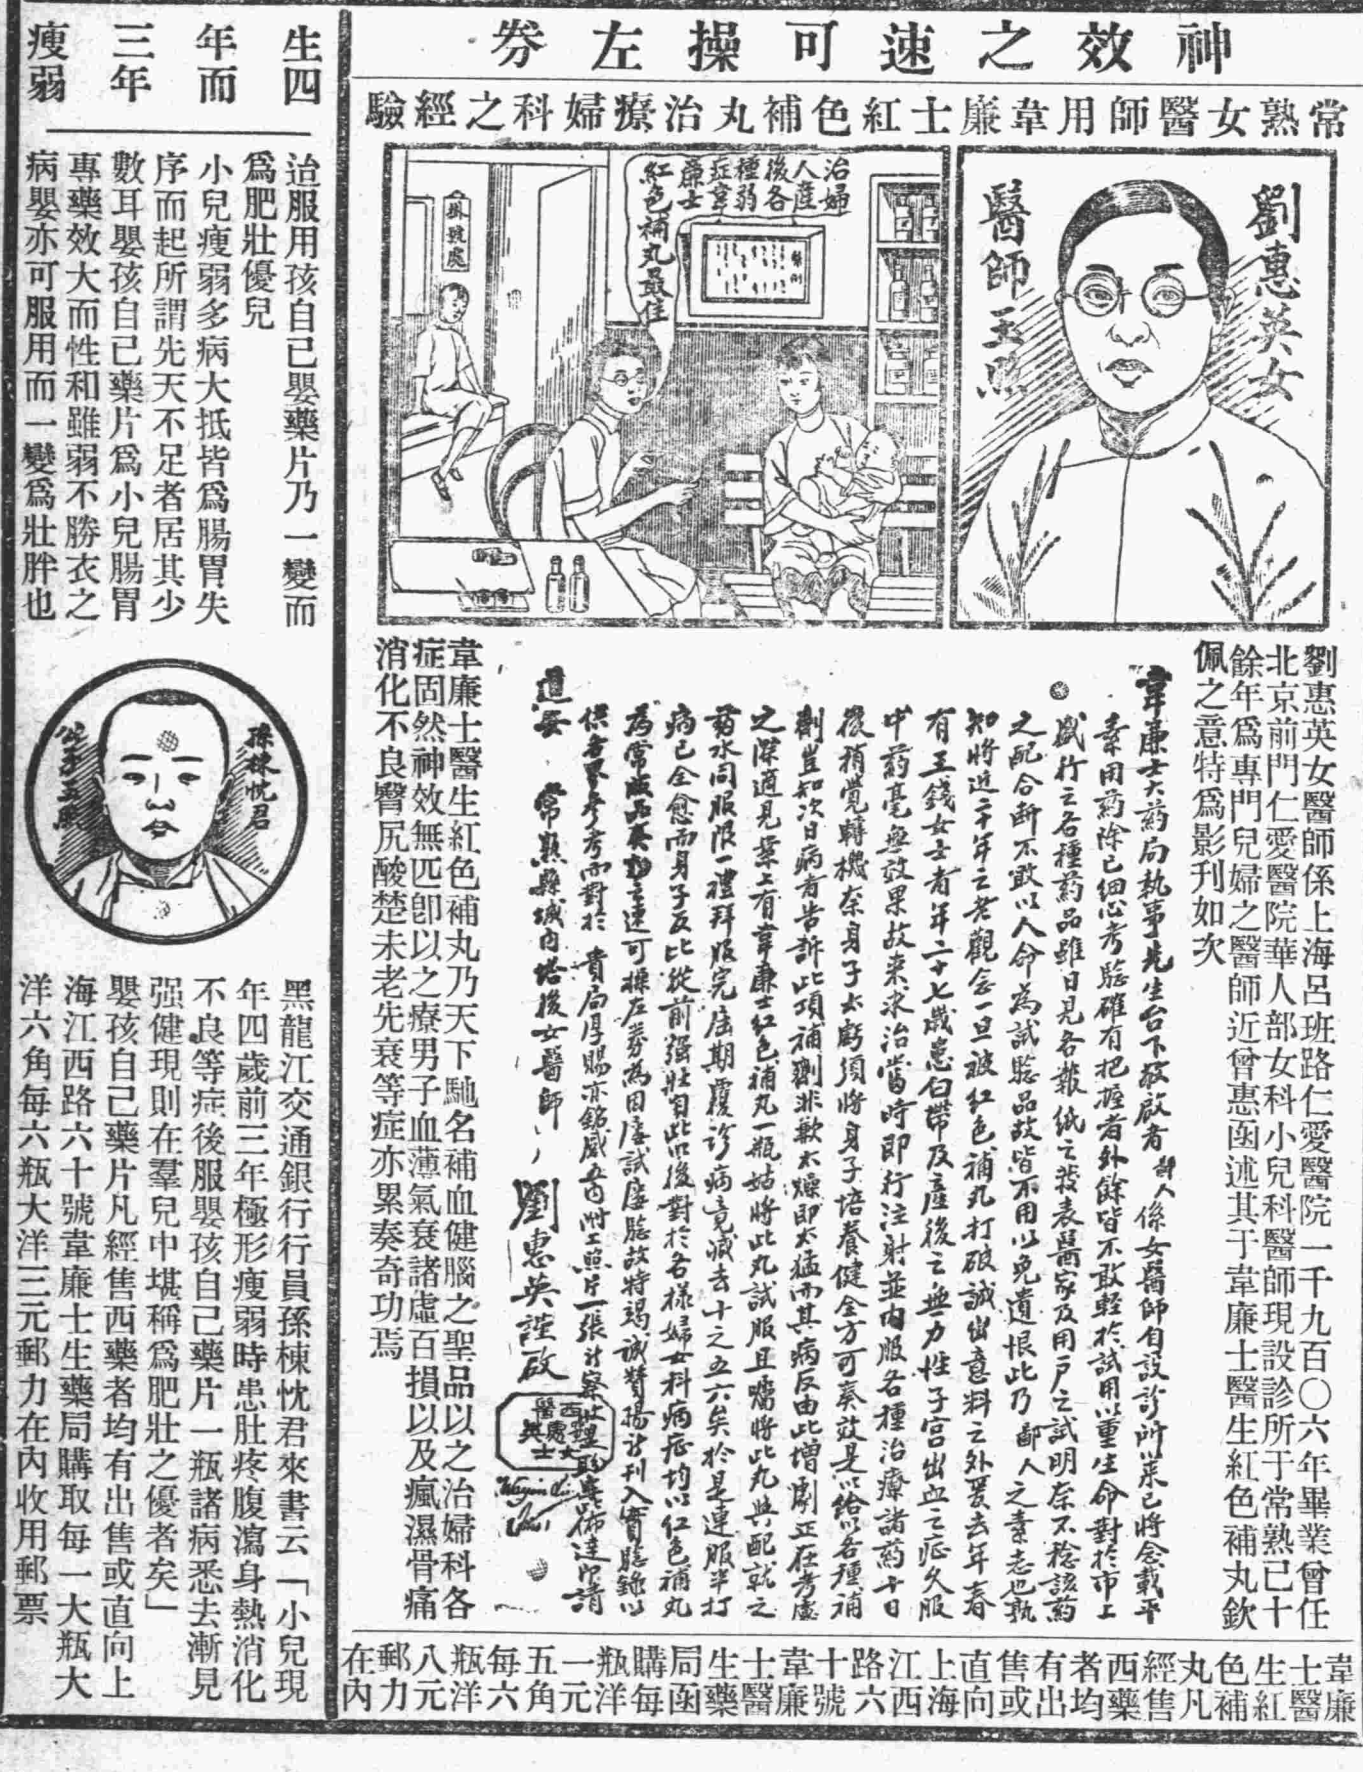 神效之速可操左劵
常熟女醫師用韋廉士紅色補丸治療婦科之經驗
劉惠英女
醫師玉照
治婦
人產
後各
種弱
症韋
廉士
紅色補丸最佳
掛號處
劉惠英女醫師係上海呂班路仁愛醫院一千九百〇六年畢業曾任
北京前門仁愛醫院華人部女科小兒科醫師現設診所于常熟已十
餘年爲專門兒婦之醫師近曾惠函述其于韋廉士醫生紅色補丸欽
佩之意特爲影刊如次
韋廉士大葯局執事先生台下敬啟者鄙人係女醫師自設診所業已將念載平
素用葯除已細心考驗確有把握者外餘皆不敢輕於試用以重生命對於市上
盛行之各種葯品雖日見各報紙之發表醫家及用戶之試明奈不稔該葯
之配合斷不敢以人命為試驗品故皆不用以免遺恨此乃鄙人之素志也孰
知將近二十年之老觀念一旦被紅色補丸打破誠出意料之外爰去年春
有王錢女士者年二十七歲患白帶及產後之無力性子宮出血之症久服
中葯毫無效果故來求治當時即行注射並內服各種治療諸葯十日
後稍覺轉機奈身子太虧須將身子培養健全方可奏效是以給以各種補
劑豈知次日病者告訴此項補劑非歉太燥即太猛而其病反由此增劇正在考慮
之際適見案上有韋廉士紅色補丸一瓶姑將此丸試服且囑將此丸與配就之
葯水同服限一禮拜服完屆期覆診病竟減去十之五六矣於是連服半打
病已全愈而身子反比從前强壯自此以後對於各樣婦女科病症均以紅色補丸
為常服品奏效之速可操左劵為因屢試屢驗故特竭誠贊揚祈刊入實驗錄以
供各界參考而對於貴局厚賜亦銘感五內附上照片一張祈察收專此佈達即請
道安 常熟縣城內塔後女醫師 劉惠英謹啟
韋廉士醫生紅色補丸乃天下馳名補血健腦之聖品以之治婦科各
症固然神效無匹卽以之療男子血薄氣衰諸虛百損以及瘋濕骨痛
消化不良臀尻酸楚未老先衰等症亦累奏奇功焉
韋廉士醫生紅色補丸凡經售西藥者均有出售或直向上海江西路六十號韋廉士醫生藥局函購每瓶洋一元五角每六瓶洋八元郵力在內
生四
年而
三年
瘦弱
治服用孩自己嬰藥片乃一變而
爲肥壯優兒
小兒瘦弱多病大抵皆爲腸胃失
序而起所謂先天不足者居其少
數耳嬰孩自己藥片爲小兒腸胃
專藥效大而性和雖弱不勝衣之
病嬰亦可服用而一變爲壯胖也
孫棟忱君
公子玉照
黑龍江交通銀行行員孫棟忱君來書云「小兒現
年四歲前三年極形瘦弱時患肚疼腹瀉身熱消化
不良等症後服嬰孩自己藥片一瓶諸病悉去漸見
强健現則在羣兒中堪稱爲肥壯之優者矣」
嬰孩自己藥片凡經售西藥者均有出售或直向上
海江西路六十號韋廉士醫生藥局購取每一大瓶大
洋六角每六瓶大洋三元郵力在內收用郵票